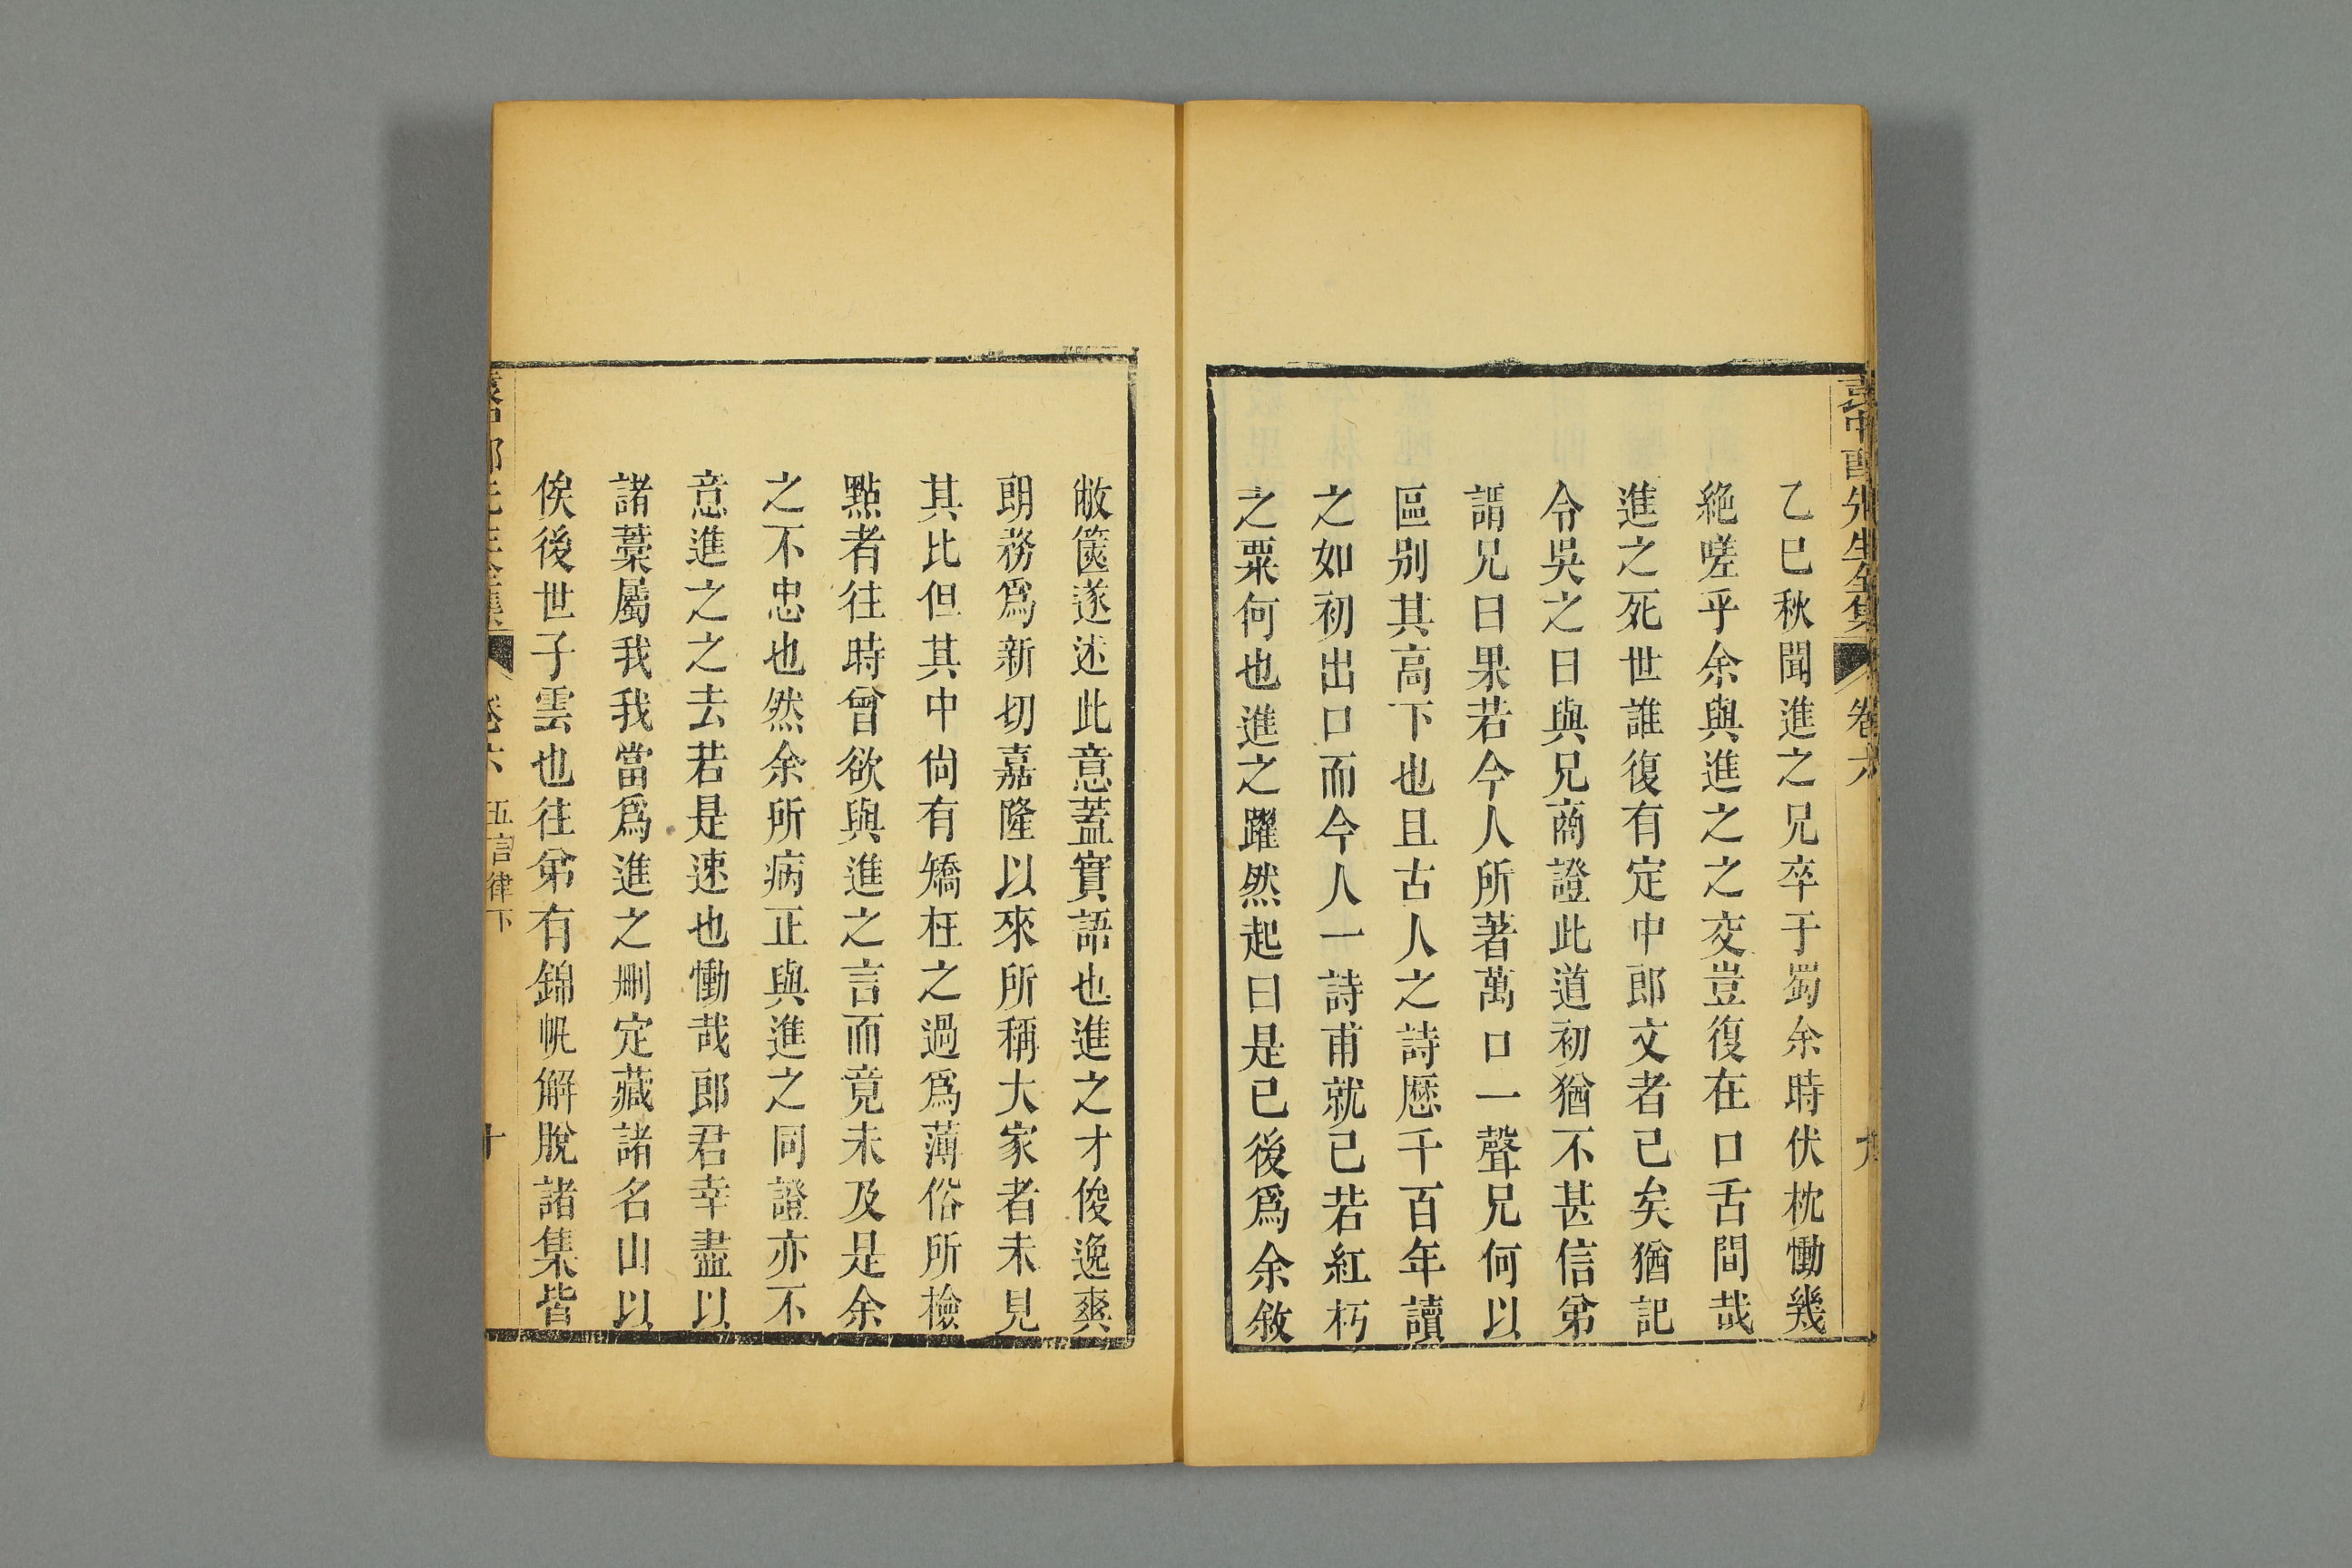 袁中郎先生全集 卷六 九
乙巳秋聞進之兄卒于蜀余時伏枕慟幾
絶嗟乎余與進之之交豈復在口舌間哉
進之死世誰復有定中郎文者已矣猶記
令吳之日與兄商證此道初猶不甚信弟
謂兄曰果若今人所著萬口一聲兄何以
區别其高下也且古人之詩歷千百年讀
之如初出口而今人一詩甫就已若紅朽
之粟何也進之躍然起曰是已後爲余敘
敝篋遂述此意蓋實語也進之才俊逸爽
朗務爲新切嘉隆以來所稱大家者未見
其比但其中尙有矯枉之過爲薄俗所檢
點者往時曾欲與進之言而竟未及是余
之不忠也然余所病正與進之同證亦不
意進之之去若是速也慟哉郎君幸盡以
諸藁屬我我當爲進之刪定藏諸名山以
俟後世子雲也往弟有錦帆解脫諸集皆
袁中郎先生全集 卷六 五言律下 十